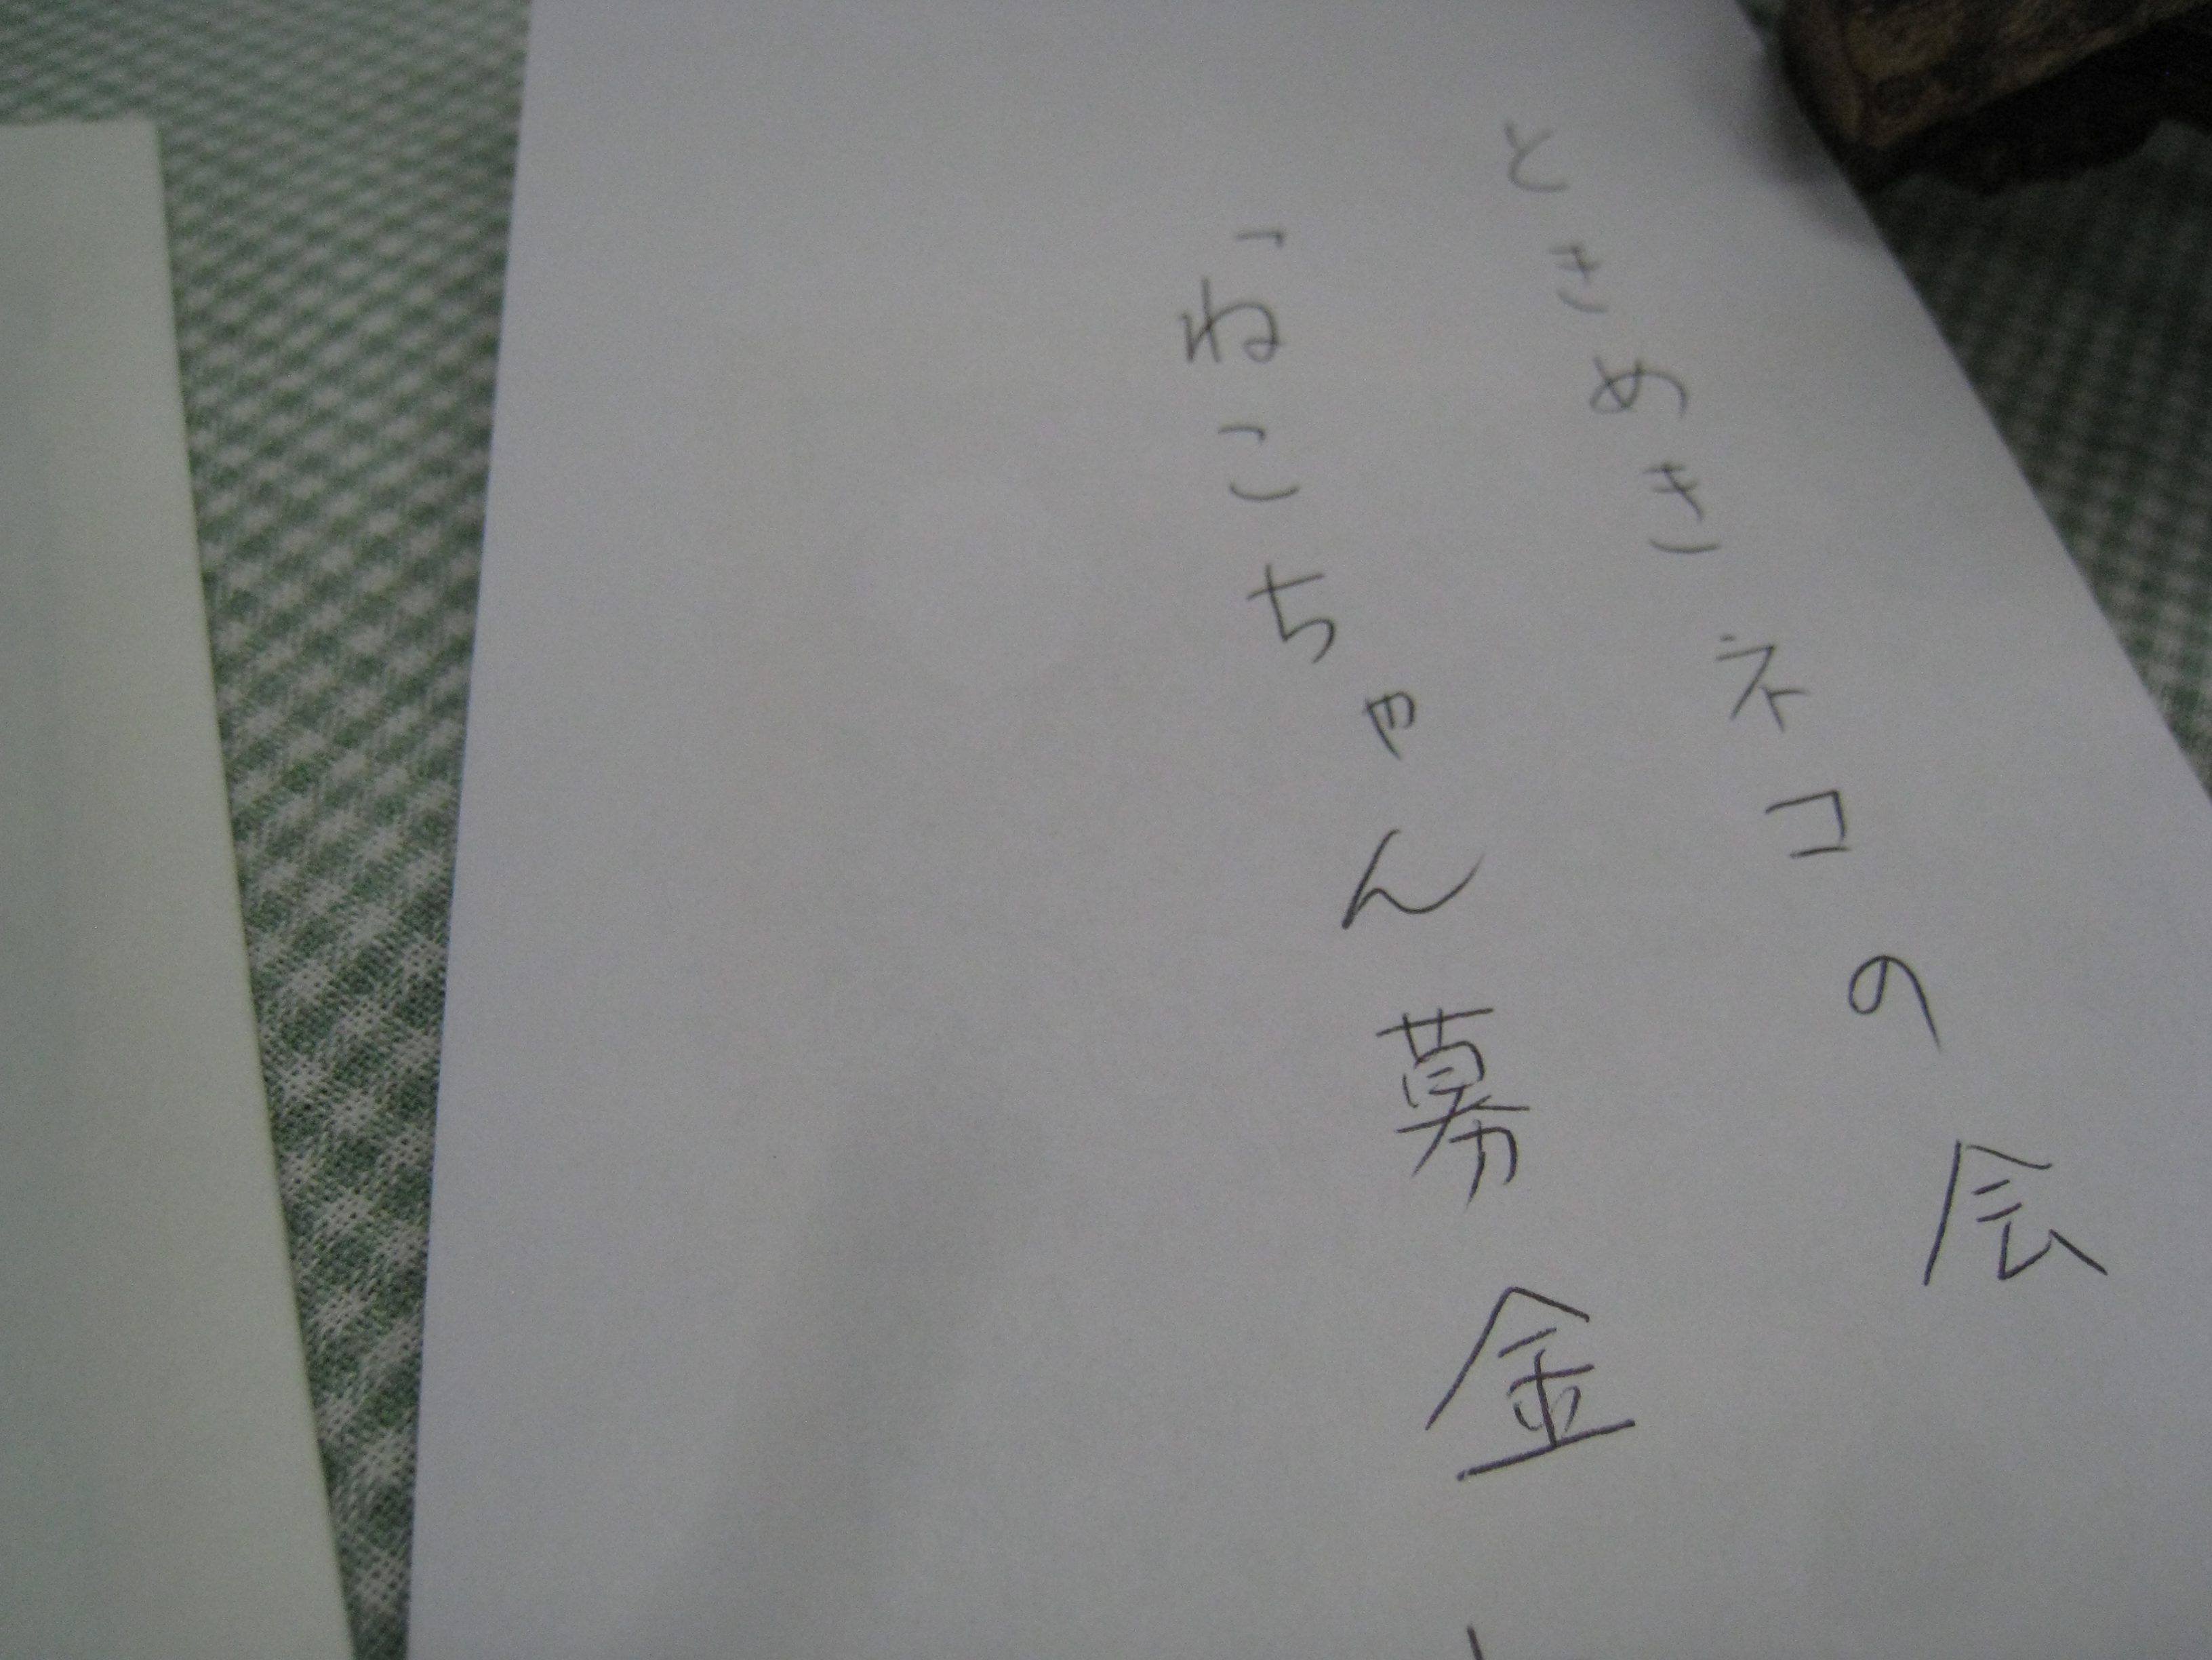 ときめきネコの会
「ねこちゃん募金